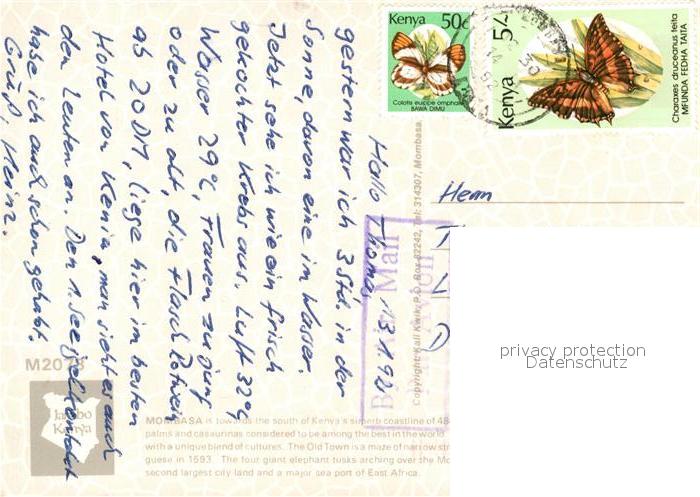 Kenya 50c
Colotis euippe omphale
BAWA DIMU
Kenya 5/-
Charaxes druceanus teita
MFUNDA FEDHA TAITA
Hallo Thomas, 13.1.92
gestern war ich 3 Std. in der
Sonne, davon eine im Wasser.
Jetzt sehe ich wie ein frisch
gekochter Krebs aus. Luft 32°C
Wasser 29°C, Frauen zu jung
oder zu alt, die Flasche Rotwein
ab 20 DM, liege hier im besten
Hotel von Kenia, man sieht es auch
den Leuten an. Den 1. Seeigelstachel
habe ich auch schon gehabt.
Gruß, Heinz.
Herrn
By Air Mail
Par Avion
Copyright: Kall Kwik, P.O. Box 82242, Tel: 314307, Mombasa
privacy protection
Datenschutz
M2078
Jambo
Kenya
MOMBASA is towards the south of Kenya's superb coastline of 48
palms and casuarinas considered to be among the best in the world
with a unique blend of cultures. The Old Town is a maze of narrow str
guese in 1593. The four giant elephant tusks arching over the Mo
second largest city land and a major sea port of East Africa.